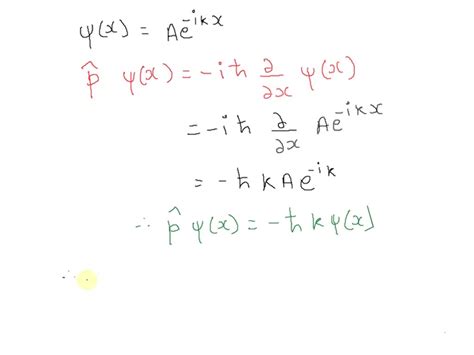 ψ(x) = Ae^{-ikx}
p̂ ψ(x) = -iħ ∂/∂x ψ(x)
= -iħ ∂/∂x Ae^{-ikx}
= -ħkAe^{-ik}
∴ p̂ ψ(x) = -ħkψ(x)
∴